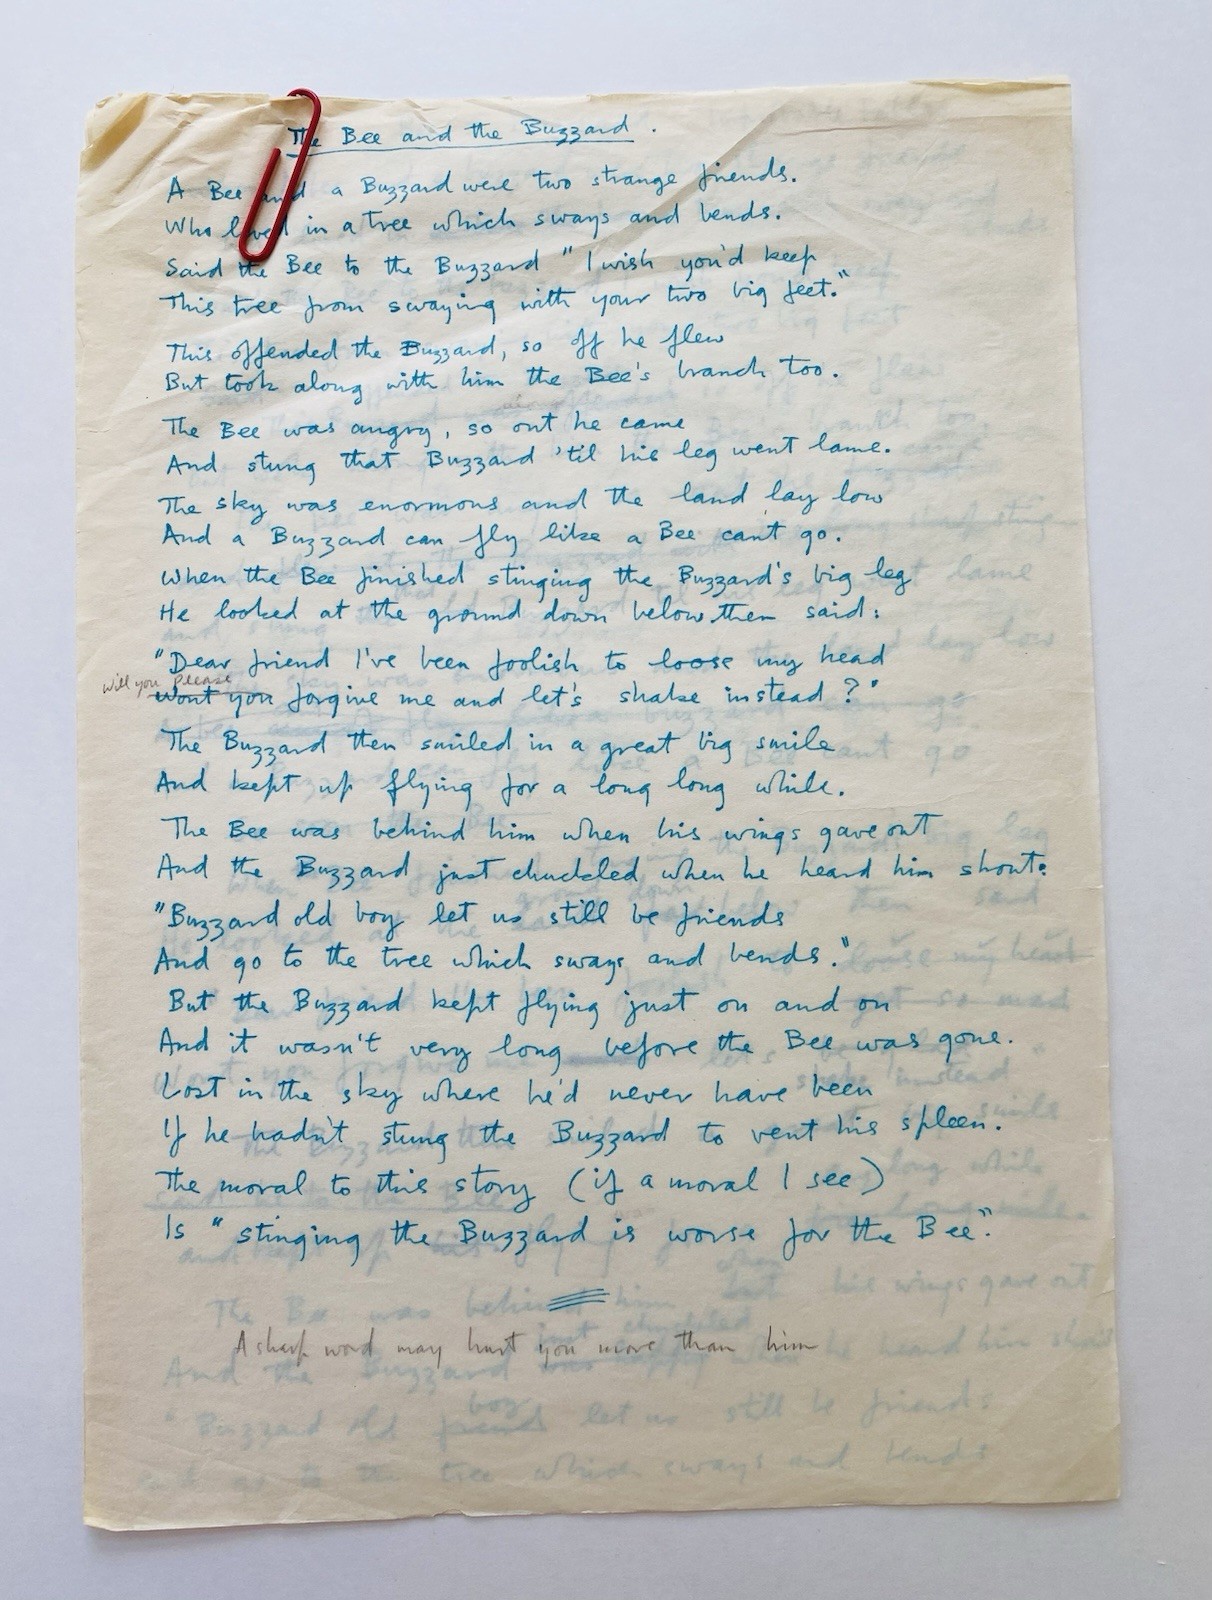 The Bee and the Buzzard.
A Bee and a Buzzard were two strange friends.
Who lived in a tree which sways and bends.
Said the Bee to the Buzzard "I wish you'd keep
This tree from swaying with your two big feet."
This offended the Buzzard, so off he flew
But took along with him the Bee's branch too.
The Bee was angry, so out he came
And stung that Buzzard 'til his leg went lame.
The sky was enormous and the land lay low
And a Buzzard can fly like a Bee can't go.
When the Bee finished stinging the Buzzard's big leg
He looked at the ground down below, then said:
"Dear friend I've been foolish to loose my head
will you please
Won't you forgive me and let's shake instead?"
The Buzzard then smiled in a great big smile
And kept up flying for a long long while.
The Bee was behind him when his wings gave out
And the Buzzard just chuckled when he heard him shout:
"Buzzard old boy let us still be friends
And go to the tree which sways and bends."
But the Buzzard kept flying just on and on
And it wasn't very long before the Bee was gone.
Lost in the sky where he'd never have been
If he hadn't stung the Buzzard to vent his spleen.
The moral to this story (if a moral I see)
Is "stinging the Buzzard is worse for the Bee".
A sharp word may hurt you more than him